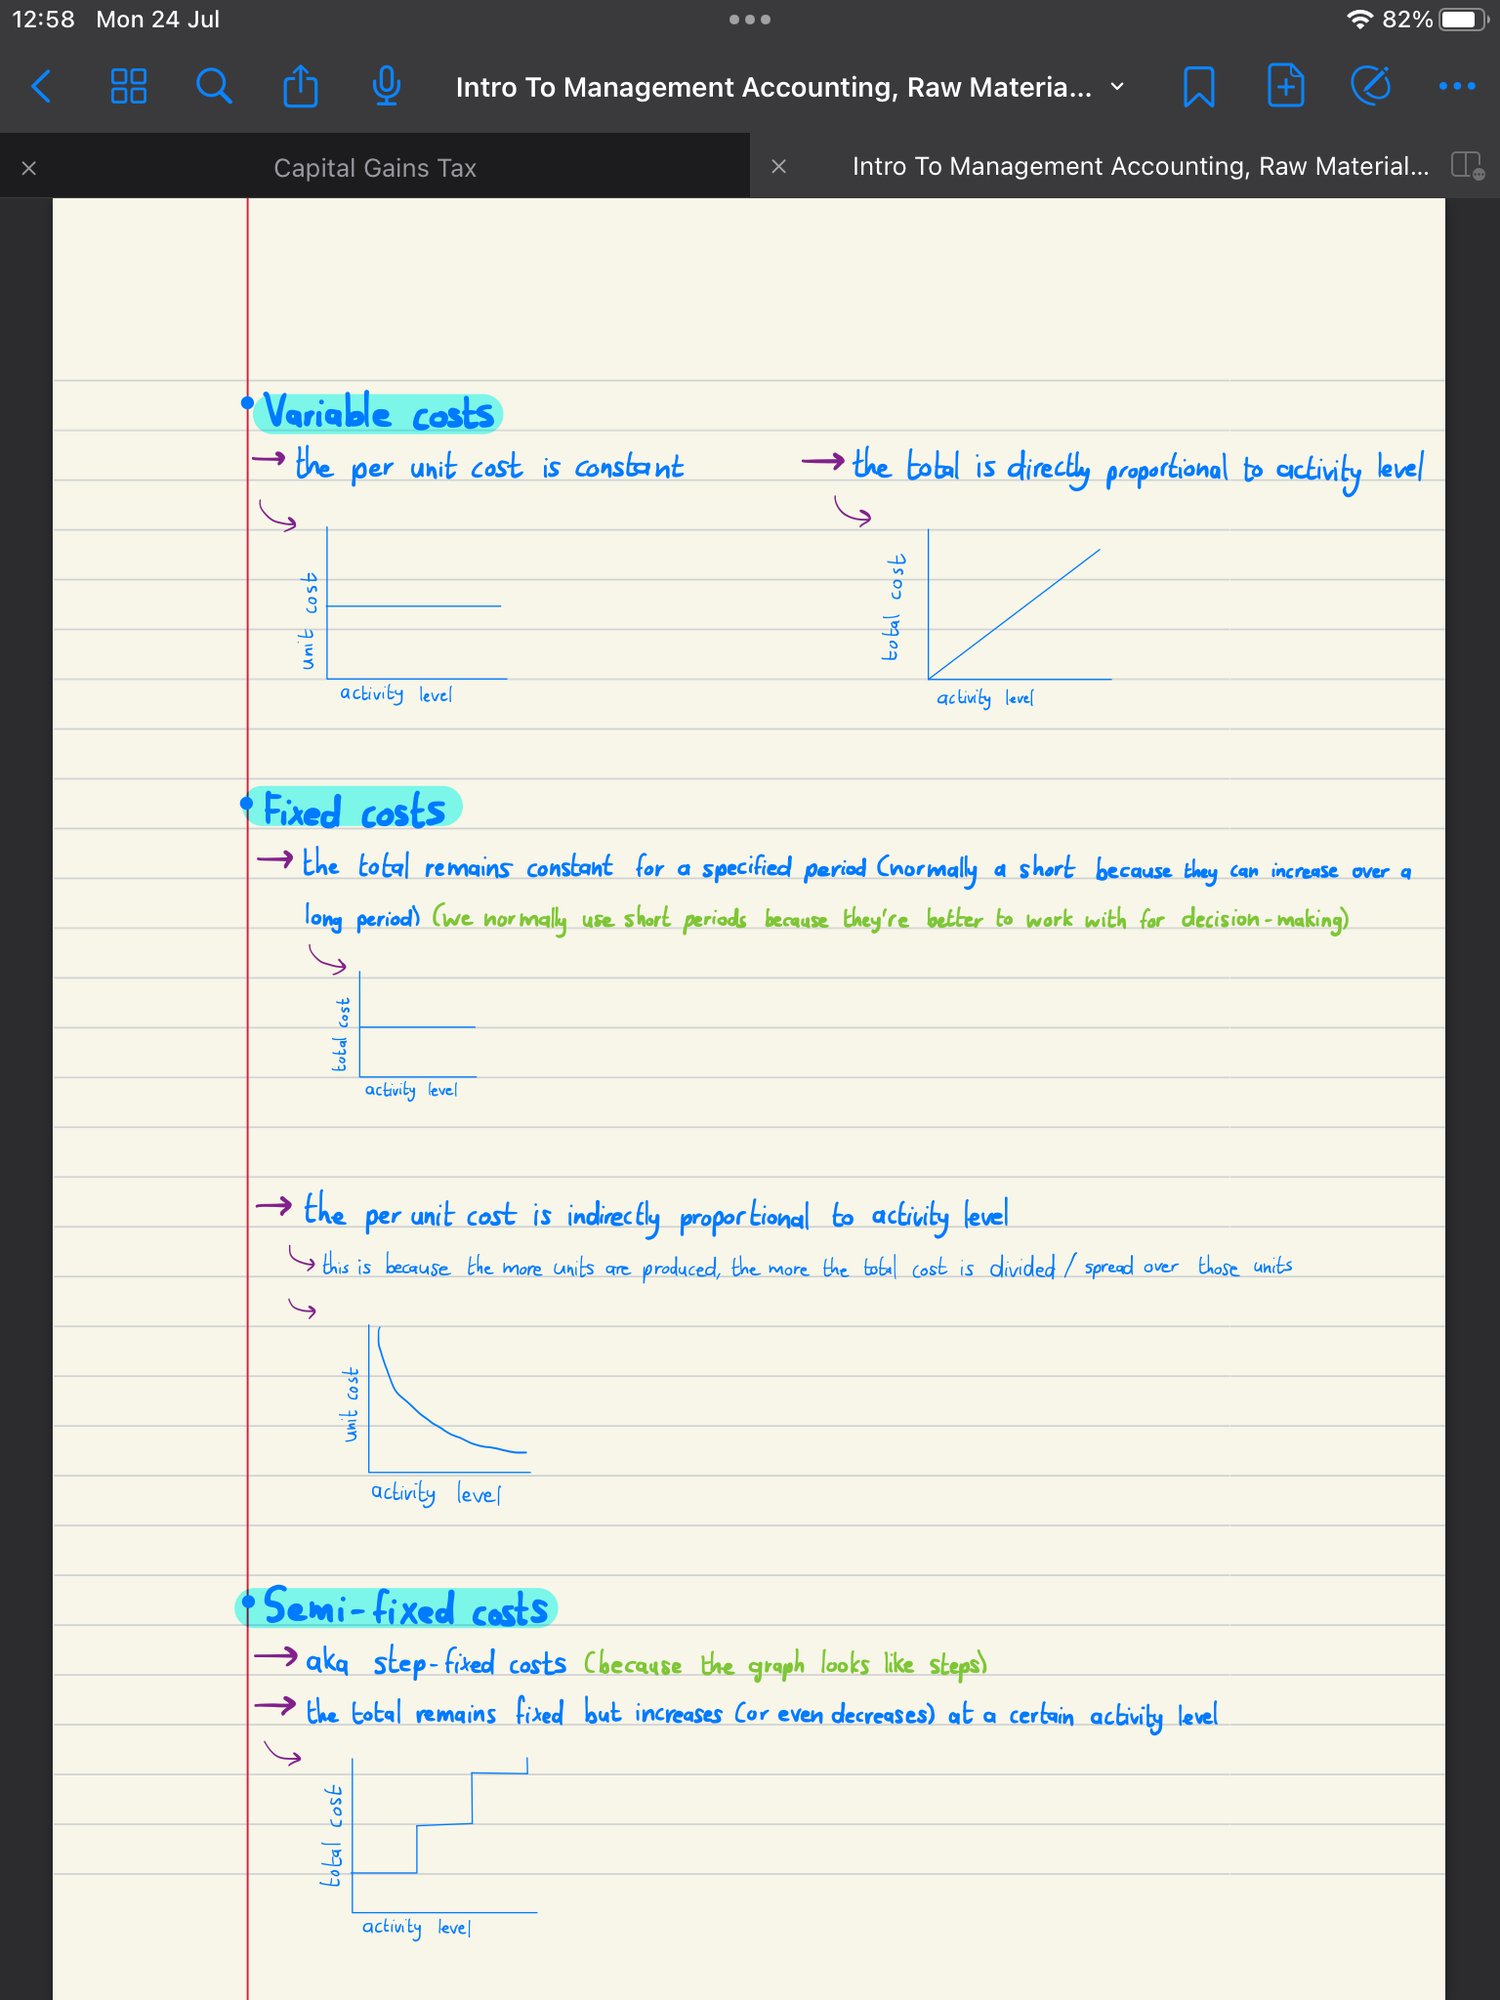 12:58 Mon 24 Jul
82%
Intro To Management Accounting, Raw Materia...
Capital Gains Tax
Intro To Management Accounting, Raw Material...
Variable costs
→ the per unit cost is constant
→ the total is directly proportional to activity level
unit cost
activity level
total cost
activity level
Fixed costs
→ the total remains constant for a specified period (normally a short because they can increase over a
long period) (we normally use short periods because they're better to work with for decision-making)
total cost
activity level
→ the per unit cost is indirectly proportional to activity level
this is because the more units are produced, the more the total cost is divided / spread over those units
unit cost
activity level
Semi-fixed costs
→ aka step-fixed costs (because the graph looks like steps)
→ the total remains fixed but increases (or even decreases) at a certain activity level
total cost
activity level